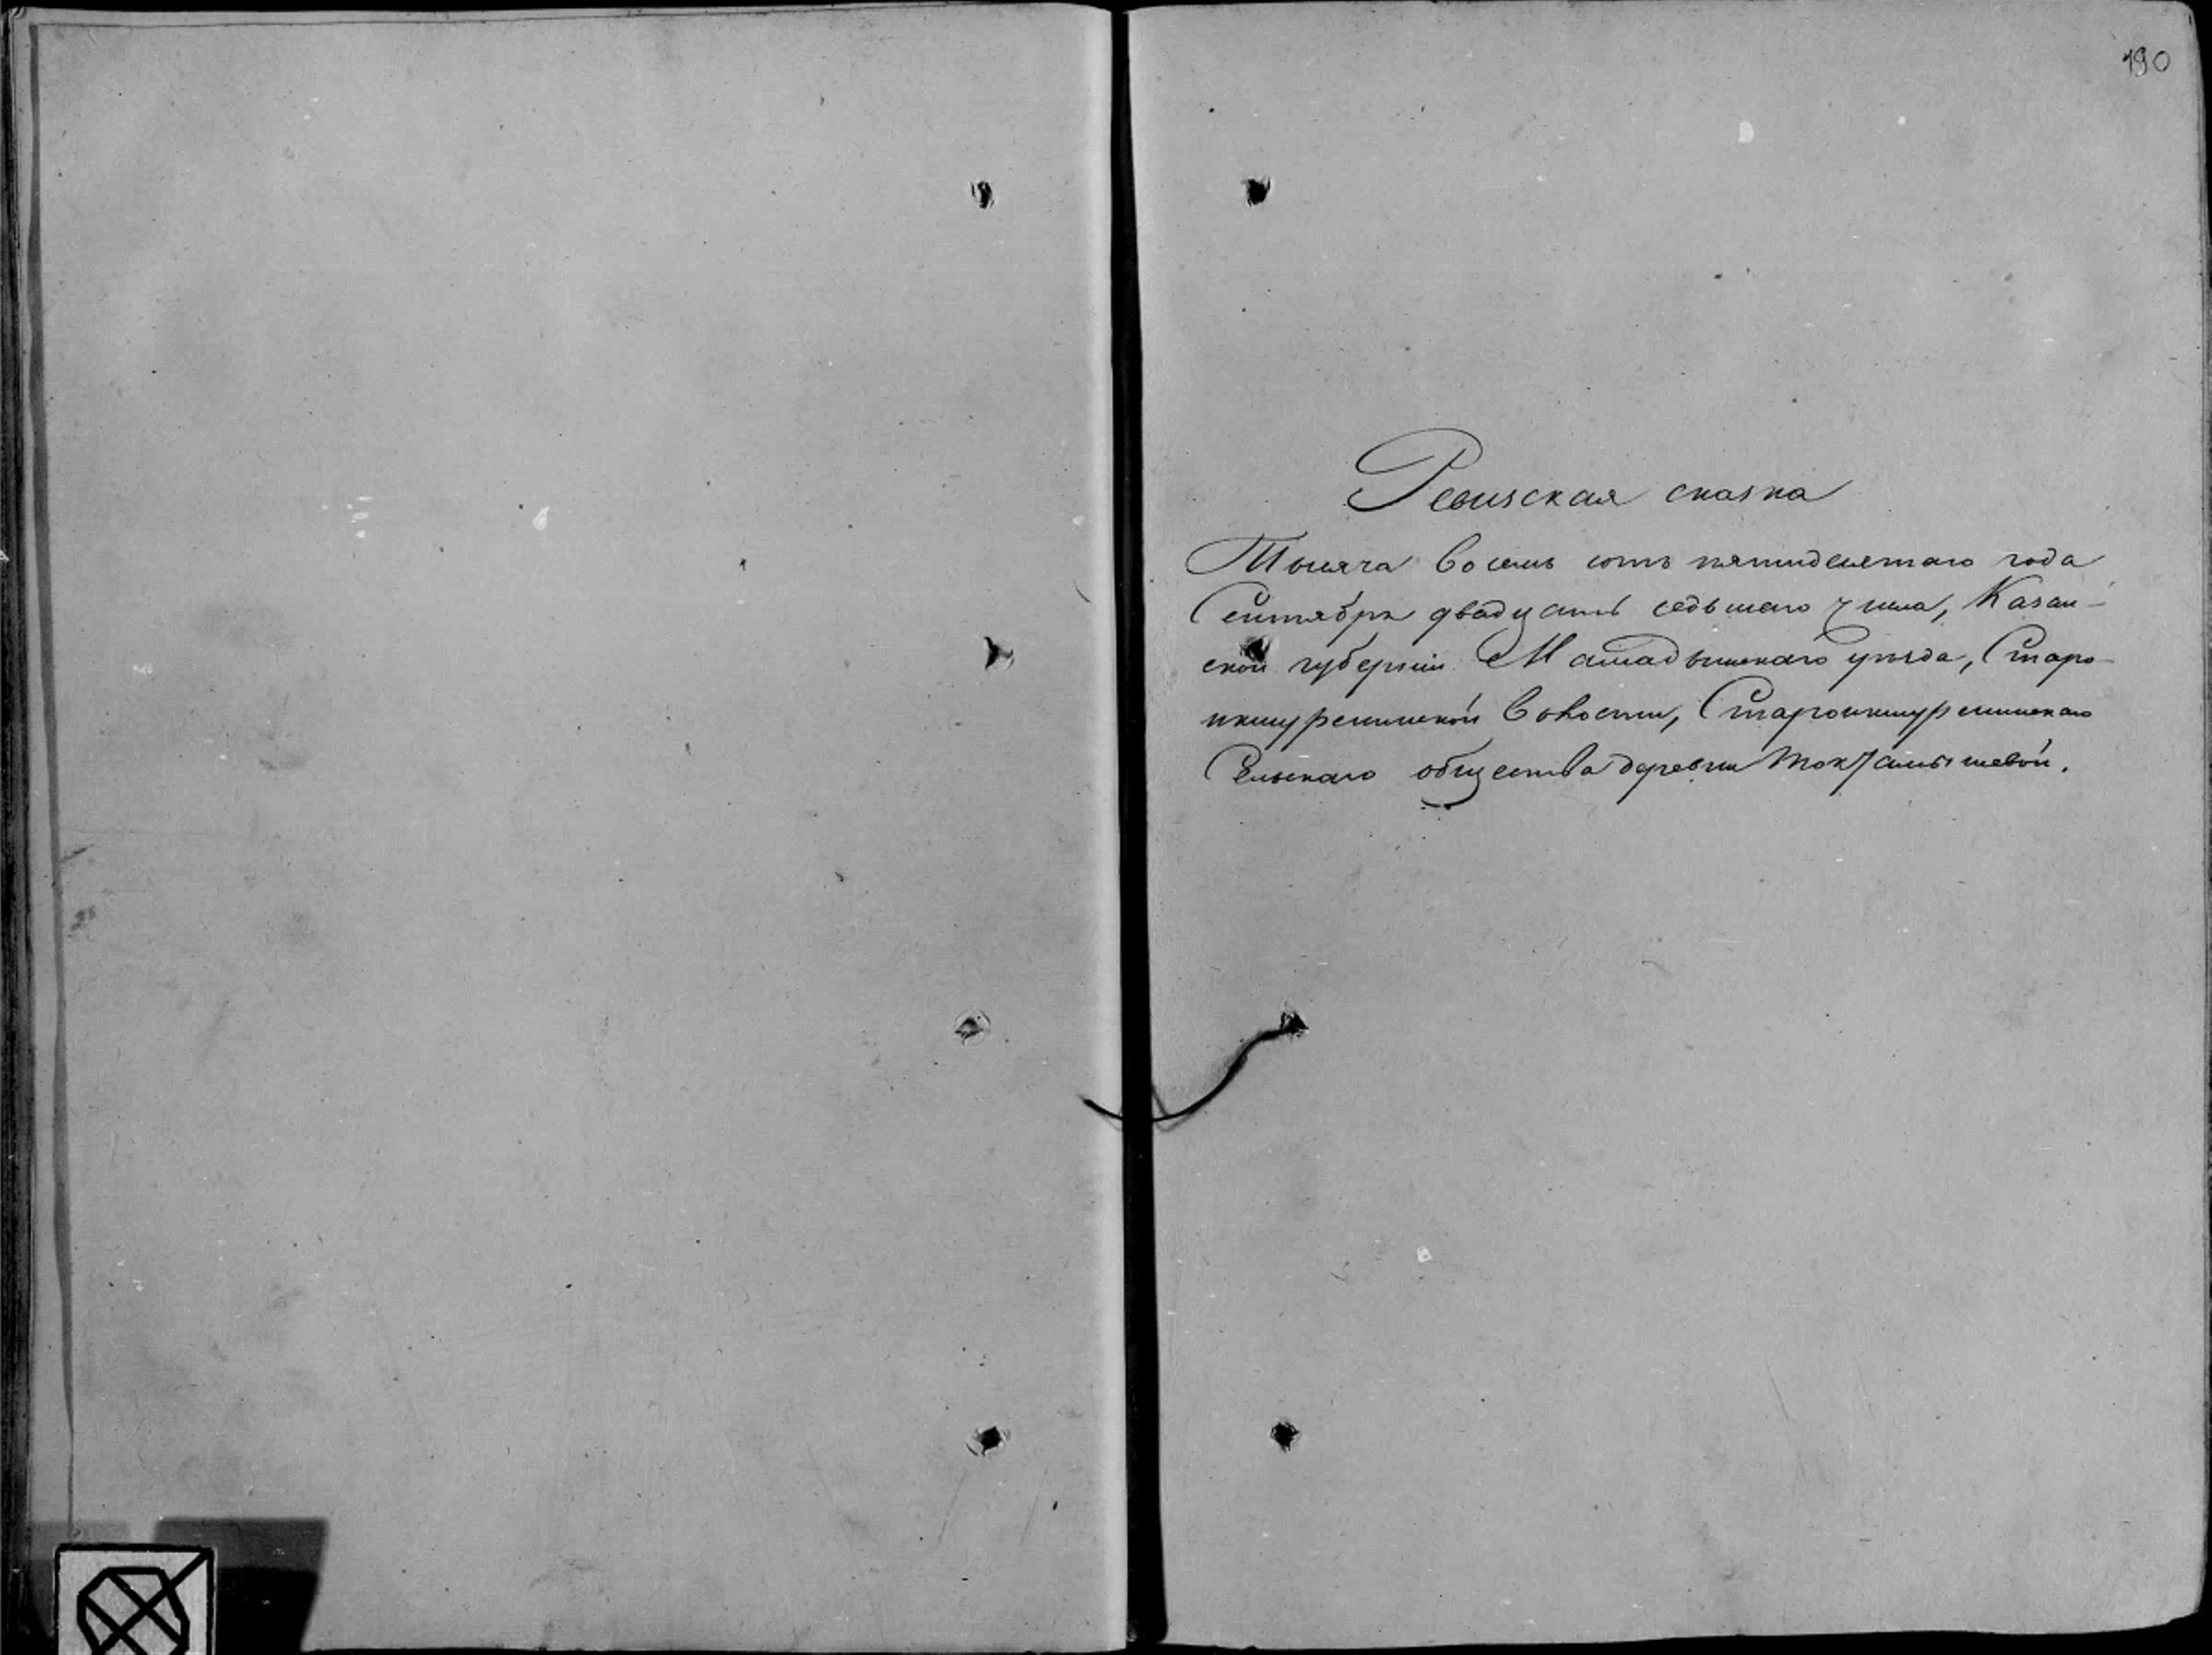 190
Ревизская сказка
Тысяча восемь сотъ пятидесятаго года
Сентября двадцать седьмаго числа, Казан-
ской губернiи Мамадышскаго уѣзда, Старо-
икшурминской волости, Староикшурминскаго
Сельскаго общества деревни Токтамышевой.